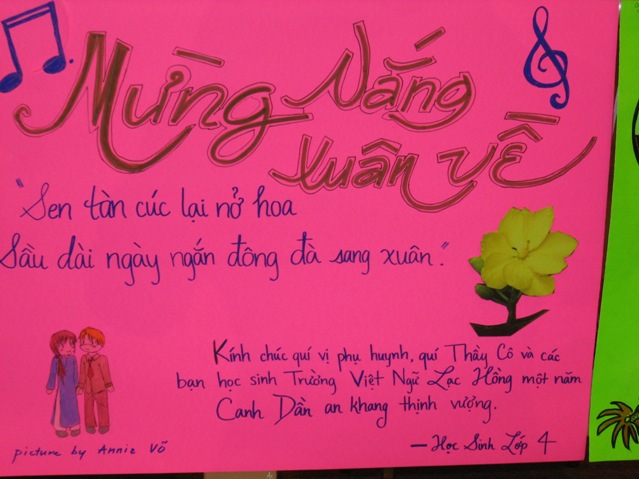 Mừng Nắng
Xuân Về
"Sen tàn cúc lại nở hoa
Sầu dài ngày ngắn đông đà sang xuân."
Kính chúc quí vị phụ huynh, quí Thầy Cô và các
bạn học sinh Trường Việt Ngữ Lạc Hồng một năm
Canh Dần an khang thịnh vượng.
— Học Sinh Lớp 4
picture by Annie Võ